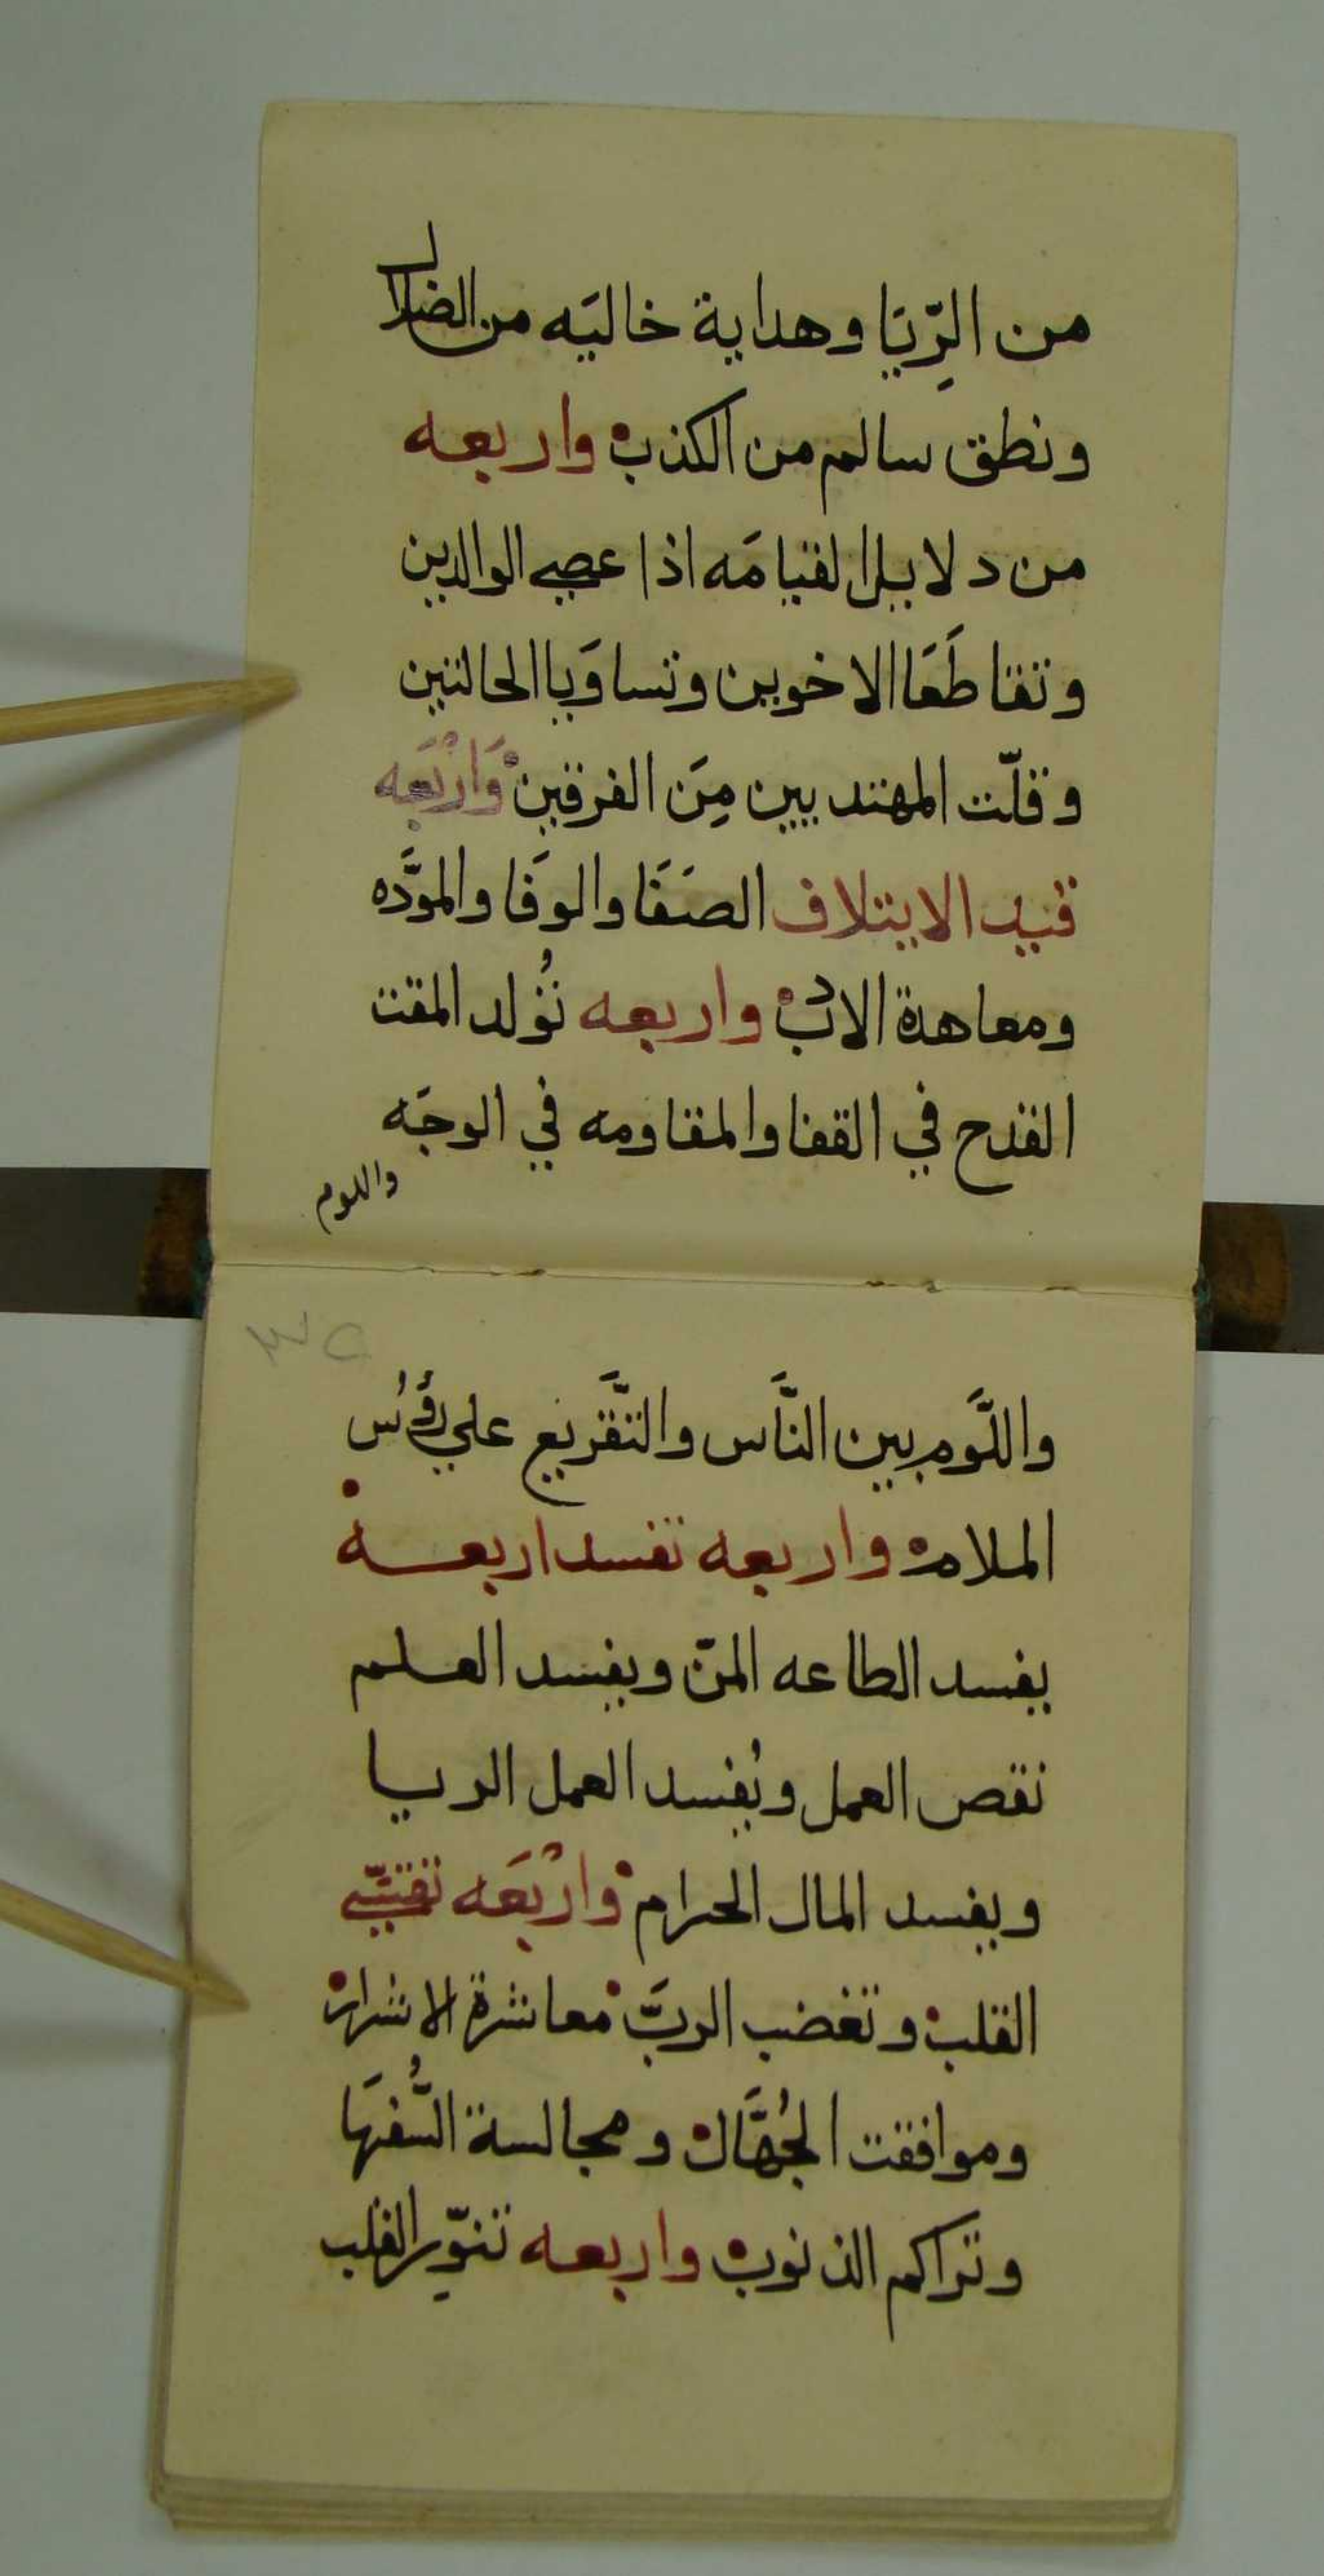 من الرِّيَا وهداية خاليَه من الضلال
ونطق سالم من الكذب واربعه
من دلايل القيامَه اذا عصي الوالدين
وتقاطَعَا الاخوين وتساوَيا الحالتين
وقلّت المهتديين مِنَ الفرقين وَارْبَعَه
قيد الايتلاف الصَفَا والوَفا والموَدَّه
ومعاهدة الادب واربعه تُولد المقت
القدح في القفا والمقاومه في الوجَه
واللوم
٣٥
واللَّوم بين النَّاس والتَّقريع علي رؤُس
الملام واربعه تفسد اربعة
يفسد الطاعه المنّ ويفسد العلم
نقص العمل ويُفسد العمل الريا
ويفسد المال الحرام وارْبَعَه تقسّي
القلب وتغضب الربَّ معاشرة الاشرار
وموافقت الجُهَّال ومجالسة السُّفهَا
وتراكم الذنوب واربعه تنوّر القلب